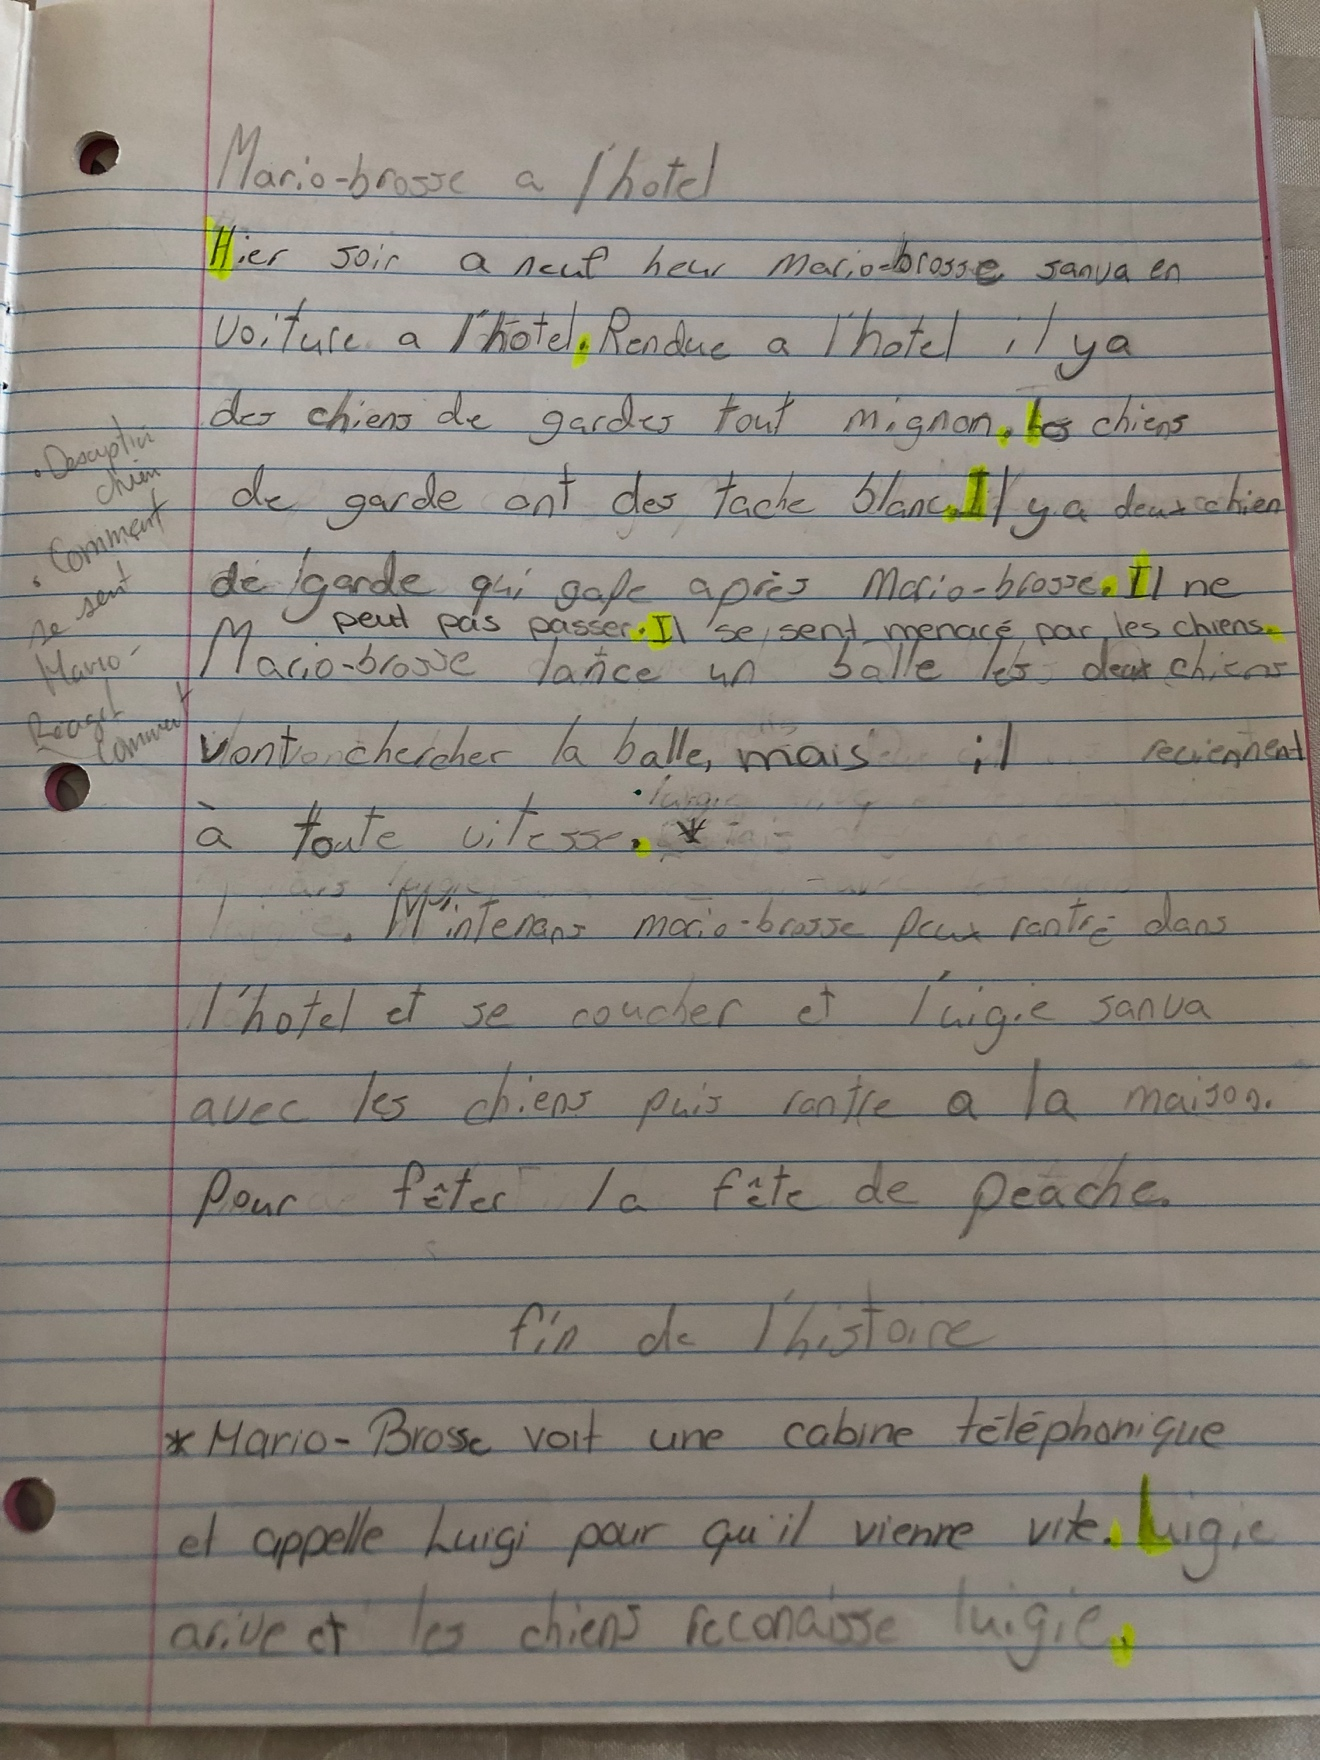 Mario-brosse a l'hotel
Hier soir a neuf heur Mario-brosse sanva en
voiture a l'hotel. Rendue a l'hotel il ya
des chiens de gardes tout mignon. les chiens
de garde ont des tache blanc. Il y a deux chien
de garde qui gape après Mario-brosse. Il ne
peut pas passer. Il se sent menacé par les chiens.
Mario-brosse lance un balle les deux chiens
vont chercher la balle, mais il reviennent
à toute vitesse. *
Mintenans mario-brosse peux rantré dans
l'hotel et se coucher et luigie sanva
avec les chiens puis rantre a la maison.
pour fêter la fête de peache.
fin de l'histoire
* Mario-Brosse voit une cabine téléphonique
et appelle Luigi pour qu'il vienne vite. Luigie
arive et les chiens reconaisse luigie.
• Description
chien
• Comment
se sent
Mario-
Réagit
comment